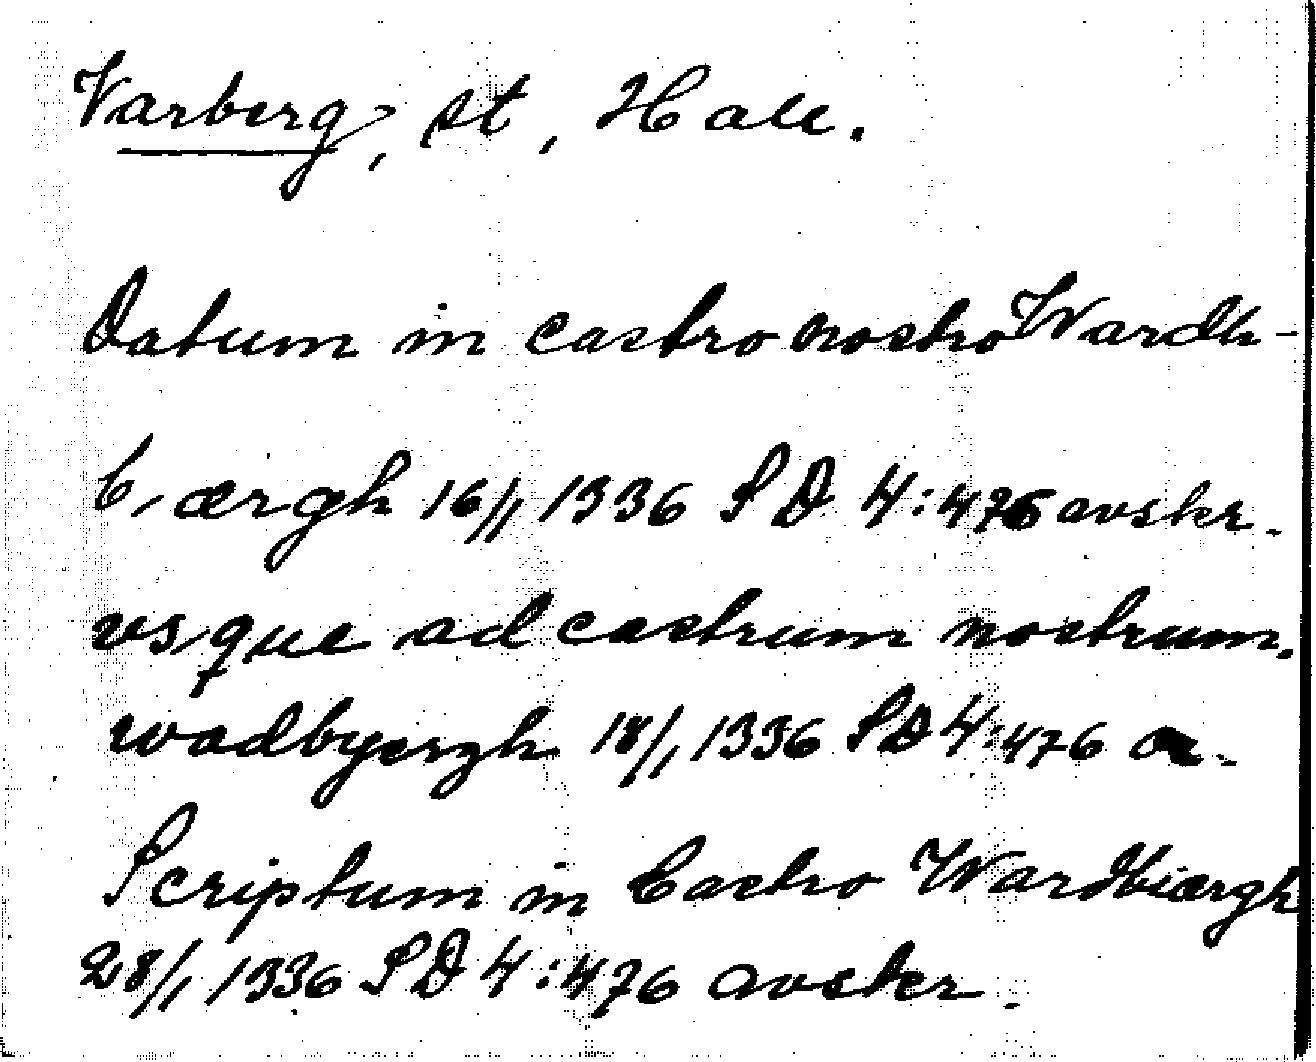 Varberg, st, Hall.
Datum in castro nostro Wardh-
bærgh 16/1 1336 SD 4:476 avskr.
vsque ad castrum nostrum.
wadbyergh 18/1 1336 SD 4:476 a.
Scriptum in Castro Wardbiærgh
28/1 1336 SD 4:476 avskr.